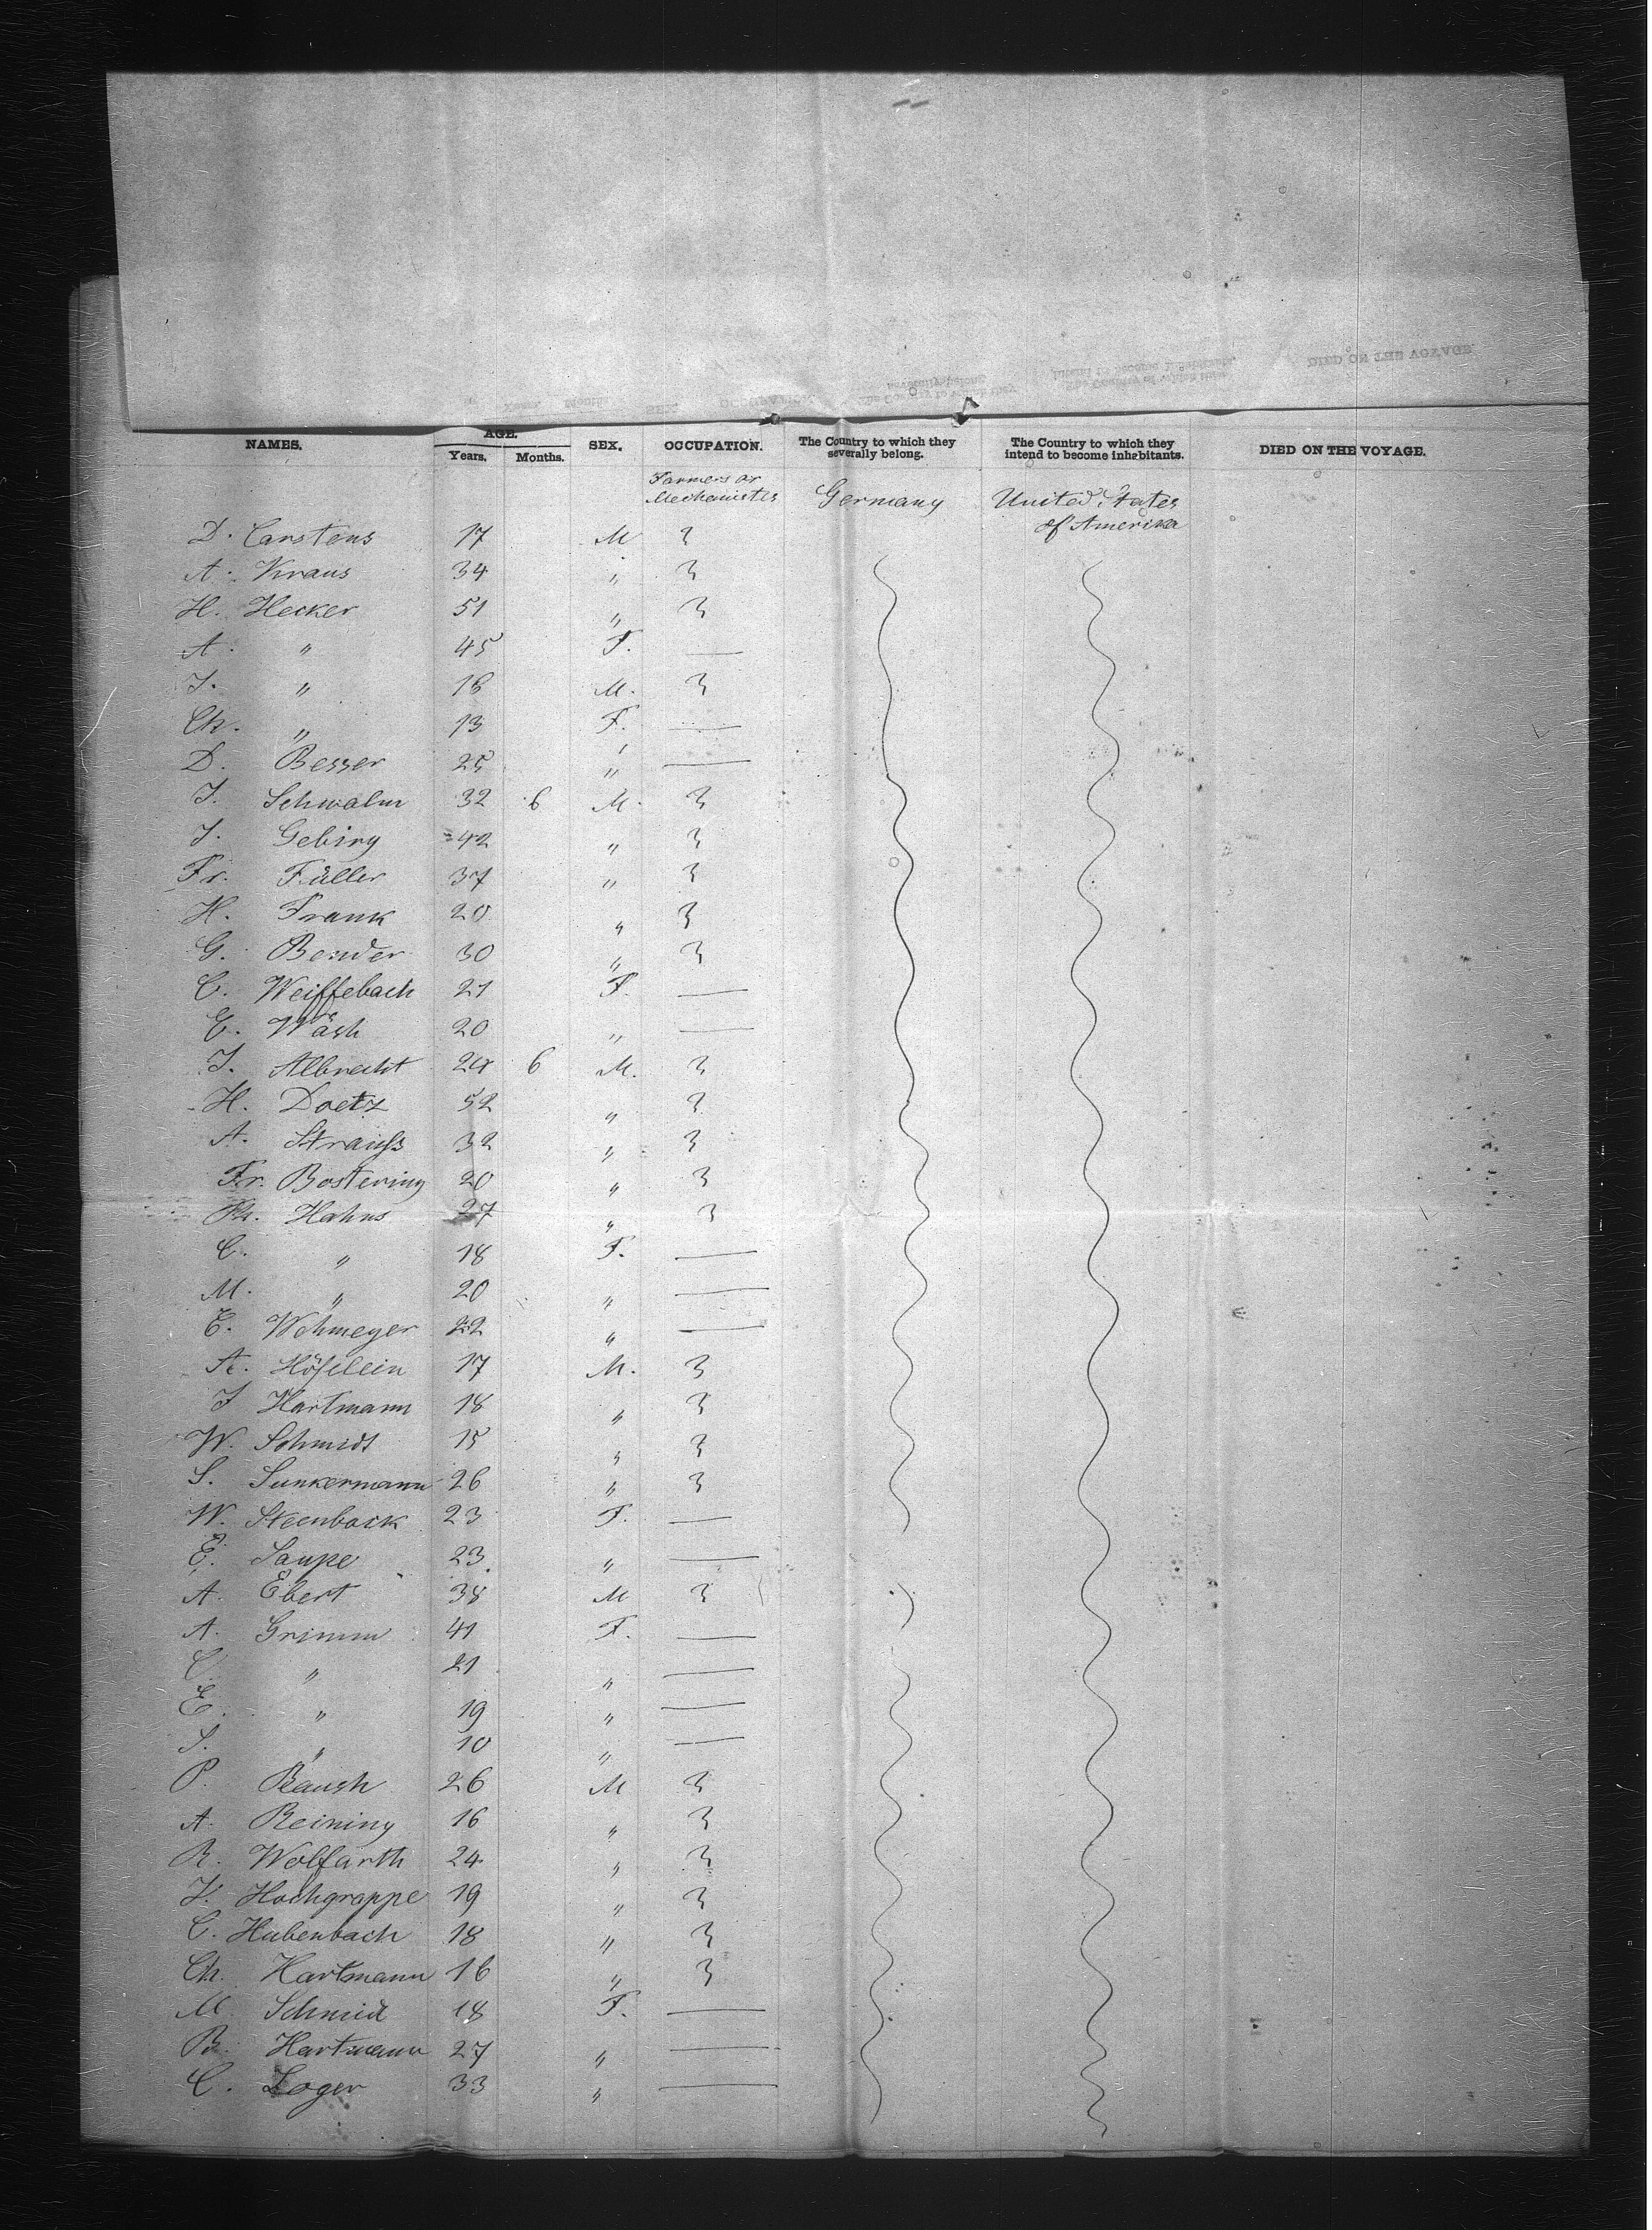 NAMES. AGE. SEX. OCCUPATION. The Country to which they severally belong. The Country to which they intend to become inhabitants. DIED ON THE VOYAGE.
Years. Months.
Farmers or Mechanistes Germany United States of Amerika
D. Carstens 17 M 3
A. Kraus 34 " 3
H. Hecker 51 " 3
A. " 45 F. —
J. " 18 M. 3
Ch. " 13 F. —
D. Besser 25 " —
J. Schwalm 32 6 M. 3
J. Gebing 42 " 3
Fr. Füller 37 " 3
H. Frank 20 " 3
G. Bender 30 " 3
C. Weiffebach 21 F. —
E. Wäsh 20 " —
J. Albrecht 24 6 M. 3
H. Doetz 52 " 3
A. Strauss 32 " 3
Fr. Bostering 20 " 3
Hahns 27 " 3
C. " 18 F. —
M. " 20 " —
E. Wehmeyer 22 " —
A. Höfelein 17 M. 3
J Hartmann 18 " 3
W. Schmidt 15 " 3
S. Sunkermann 26 " 3
W. Steenbock 23 F. —
E. Saupe 23 " —
A. Ebert 38 M 3
A. Grimm 41 F. —
C. " 21 " —
E. " 19 " —
S. " 10 " —
P. Raush 26 M 3
A. Reining 16 " 3
R. Wolfarth 24 " 3
Hochgrappe 19 " 3
C. Hubenbach 18 " 3
Ch. Hartmann 16 " 3
M. Schmid 18 F. —
B. Hartmann 27 " —
C. Loger 33 " —